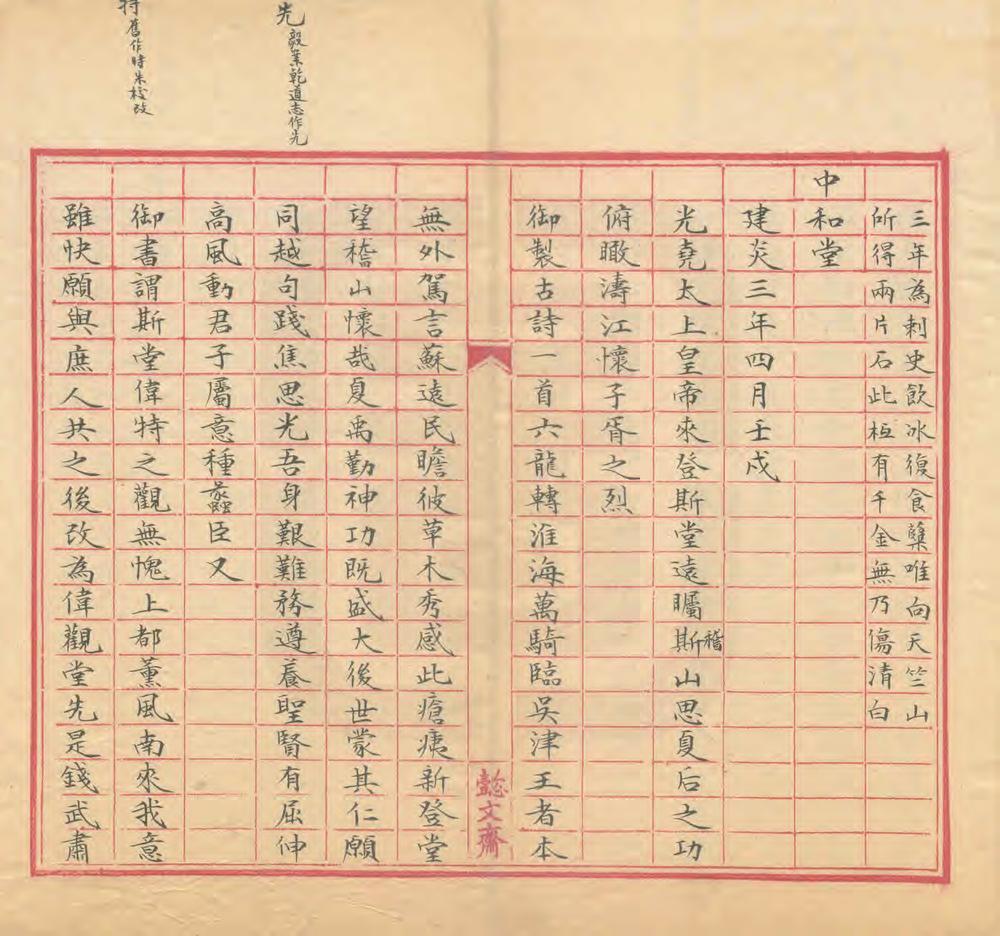 三年為剌史飲冰復食櫱唯向天竺山
所得兩片石此極有千金無乃傷清白
中和堂
建炎三年四月壬戍
光堯太上皇帝來登斯堂遠矚斯稽山思夏后之功
俯瞰濤江懷子胥之烈
御製古詩一首六龍轉淮海萬騎臨吳津王者本
懿文齋
無外駕言蘇遠民瞻彼草木秀感此瘡痍新登堂
望稽山懷哉夏禹勤神功既盛大後世蒙其仁願
同越句踐焦思光吾身艱難務遵養聖賢有屈伸
高風動君子屬意種蠡臣又
御書謂斯堂偉特之觀無愧上都薰風南來我意
雖快願與庶人共之後改為偉觀堂先是錢武肅
先毅業乾道志作先
特舊作時朱校改